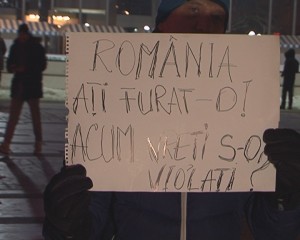 ROMÂNIA
AȚI FURAT-O!
ACUM VREȚI S-O
VIOLAȚI?